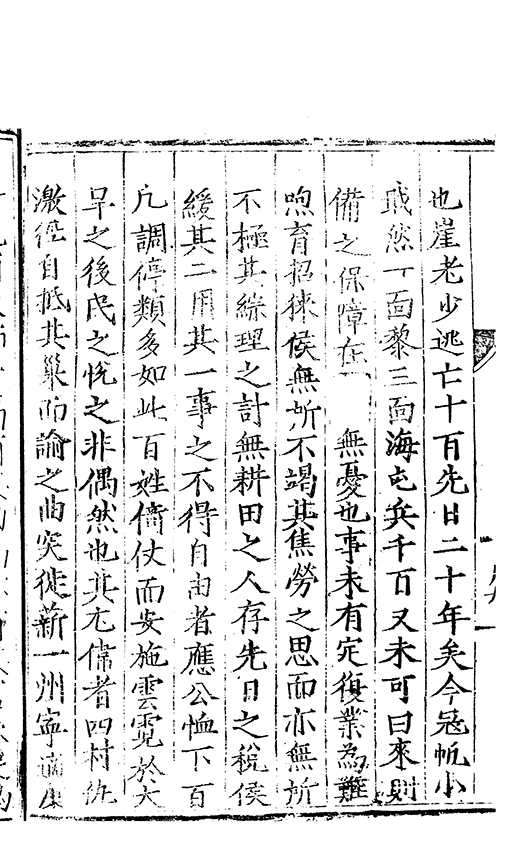 也崖老少逃亡十百先日二十年矣今冠帆小
戢然一面黎三面海屯兵千百又未可曰來則
備之保障在 無憂也事未有定復業為難
喣育招徠侯無所不竭其焦勞之思而亦無所
不極其綜理之計無耕田之人存先日之稅侯
緩其二用其一事之不得自由者應公恤下百
凡調停類多如此百姓倚仗而安施雲霓於大
旱之後民之悅之非偶然也其尤偉者四村仇
激徑自抵其巢而諭之曲突徙薪一州寧